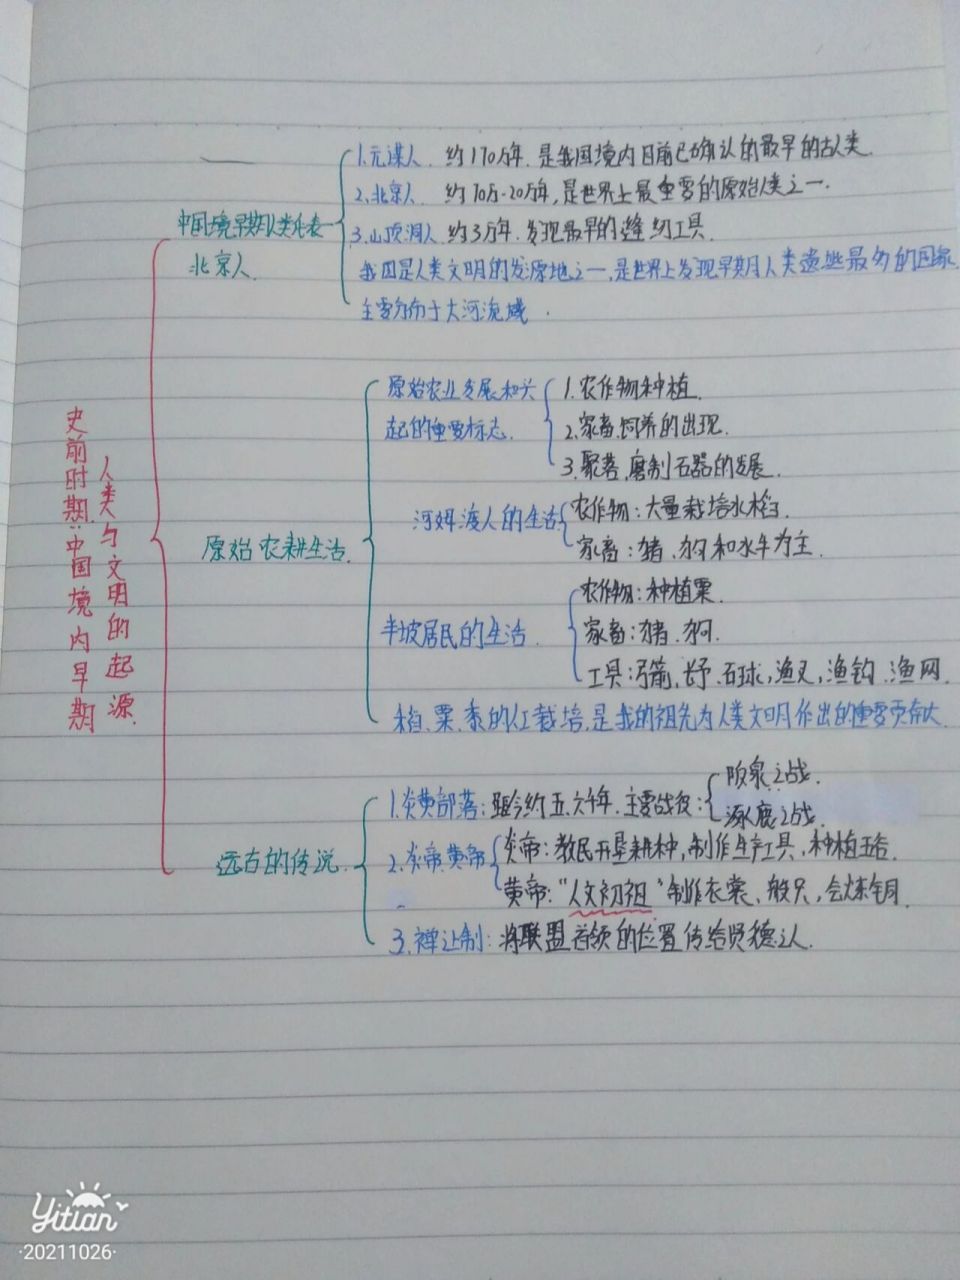 史前时期:中国境内早期
人类与文明的起源.
中国境早期人类代表
北京人.
1.元谋人. 约170万年. 是我国境内目前已确认的最早的古人类.
2.北京人. 约70万-20万年,是世界上最重要的原始人类之一.
3.山顶洞人 约3万年.发现最早的缝纫工具.
我国是人类文明的发源地之一,是世界上发现早期人类遗址最多的国家
主要分布于大河流域.
原始农耕生活.
原始农业发展和兴
起的重要标志.
1.农作物种植.
2.家畜.饲养的出现.
3.聚落,磨制石器的发展.
河姆渡人的生活
农作物:大量栽培水稻.
家畜:猪、狗和水牛为主.
半坡居民的生活.
农作物:种植粟.
家畜:猪.狗.
工具:弓箭,长矛.石球,渔叉,渔钩.渔网.
稻、粟、黍的人工栽培,是我的祖先为人类文明作出的重要贡献大
远古的传说.
1.炎黄部落:距今约五、六千年.主要战役:
阪泉之战.
涿鹿之战.
2.炎帝.黄帝
炎帝:教民开垦耕种,制作生产工具,种植五谷.
黄帝:“人文初祖”制作衣裳、船只,会炼铜.
3.禅让制:将联盟首领的位置传给贤德之人.
Yitian
·20211026·